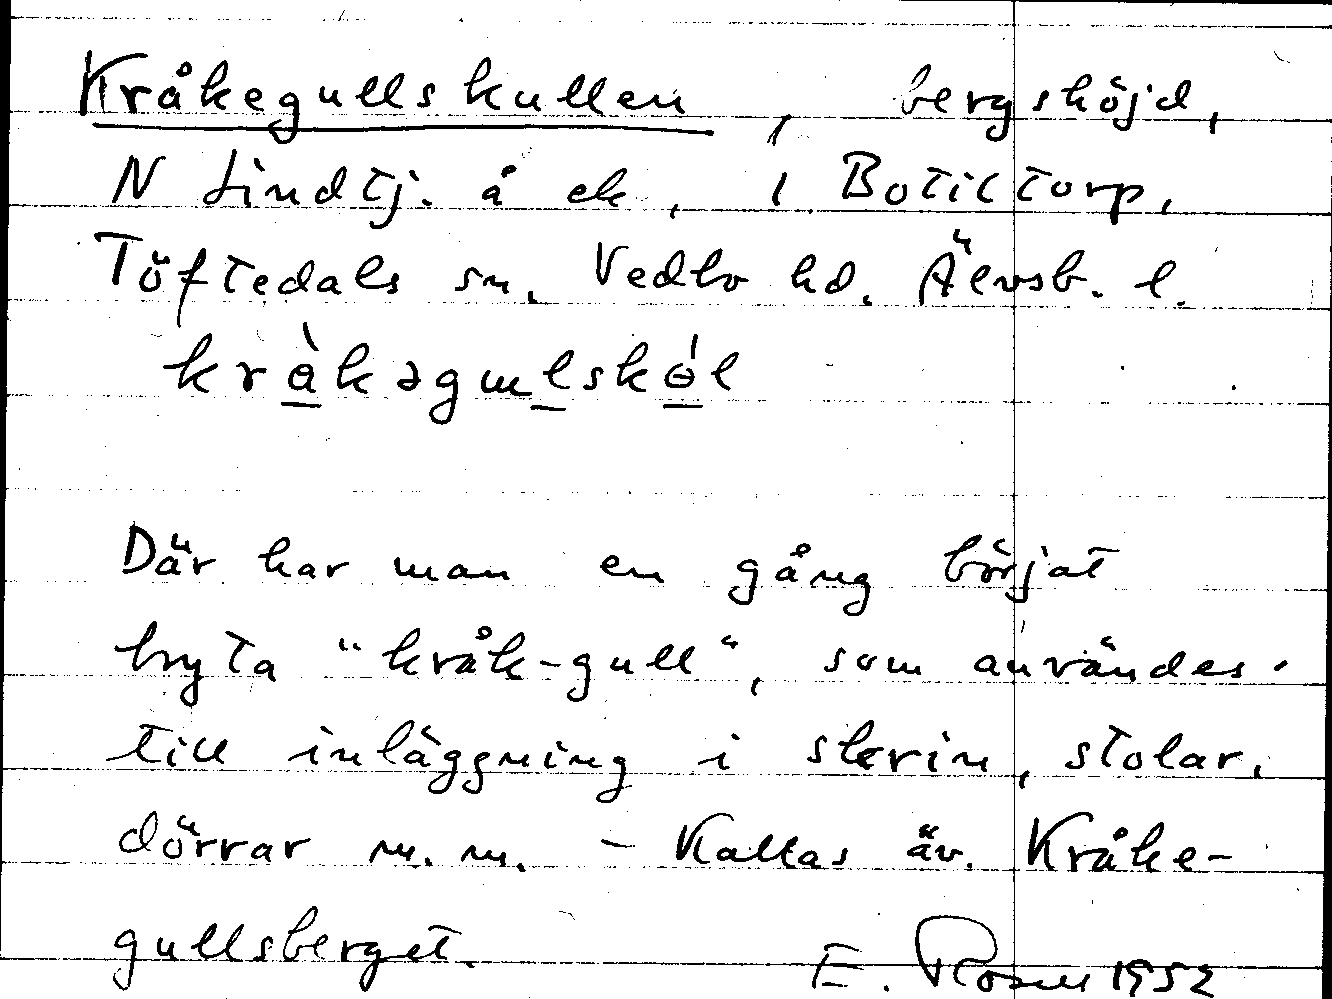 Kråkegullskullen, bergshöjd,
N Lindtj. å ek, i Botiltorp,
Töftedals sn. Vedbo hd. Älvsb. l.
Där har man en gång börjat
bryta "kråk-gull", som användes
till inläggning i skrin, stolar,
dörrar m.m. - Kallas äv. Kråke-
gullsberget.
E. Rosell 1952